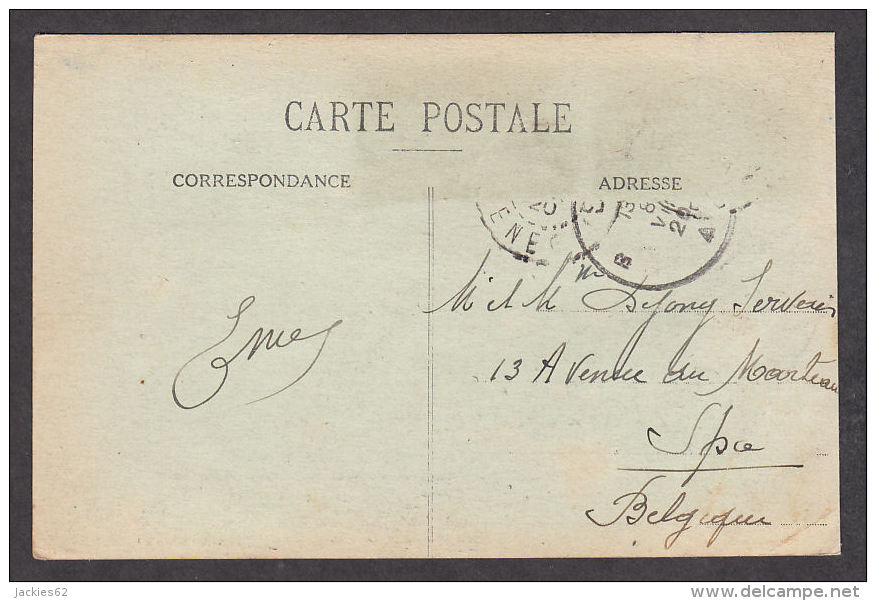 CARTE POSTALE
CORRESPONDANCE
ADRESSE
M et Mme
13 Avenue du Marteau
Spa
Belgique
jackies62
www.delcampe.net